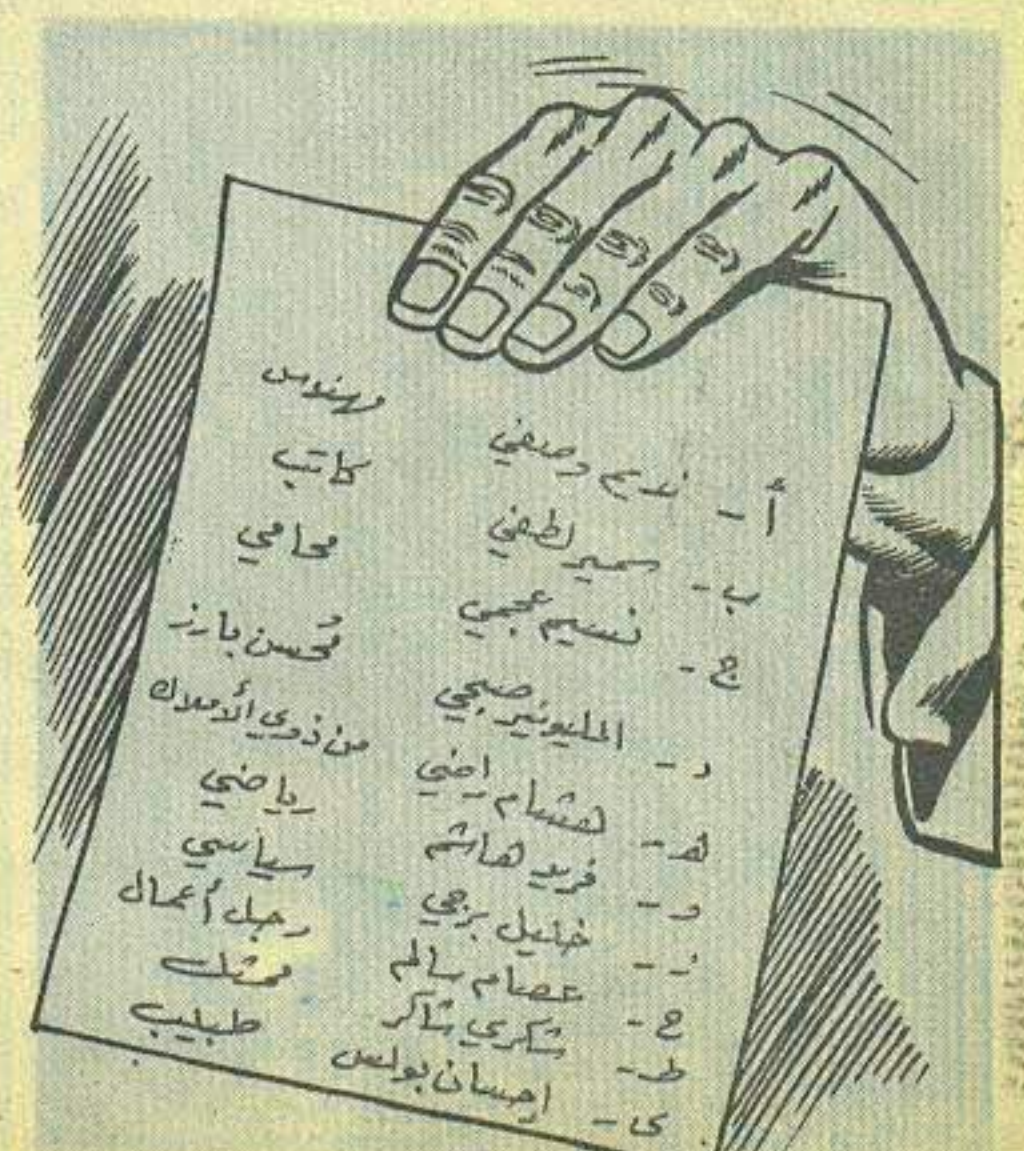 أ - نديم وصفي مهندس
ب - سمير لطفي كاتب
ج - نسيم عجمي محامي
د - المليونير صبحي مُحسن بارز
هـ - هشام راضي من ذوي الأملاك
و - فريد هاشم رياضي
ز - خليل برجي سياسي
ح - عصام سالم رجل أعمال
ط - شكري شاكر ممثل
ي - احسان بولس طبيب